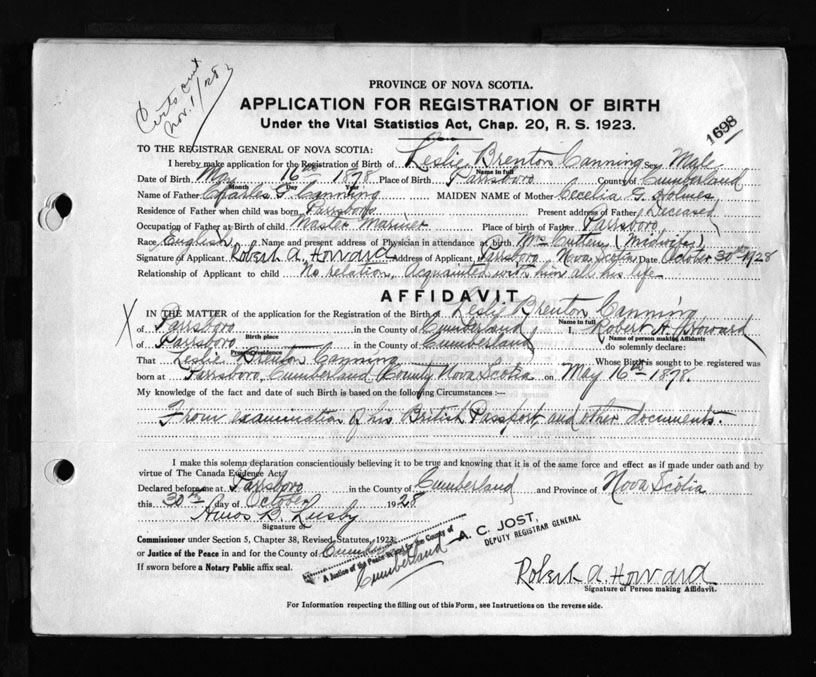 Certs out
Nov. 1/28
PROVINCE OF NOVA SCOTIA.
APPLICATION FOR REGISTRATION OF BIRTH
Under the Vital Statistics Act, Chap. 20, R. S. 1923.
1698
TO THE REGISTRAR GENERAL OF NOVA SCOTIA:
I hereby make application for the Registration of Birth of Leslie Brenton Canning Sex Male
Name in full
Date of Birth May 16th 1878 Place of Birth Parrsboro County of Cumberland
Month Day Year
Name of Father Charles G. Canning MAIDEN NAME of Mother Cecelia G. Holmes
Residence of Father when child was born Parrsboro Present address of Father Deceased
Occupation of Father at Birth of child Master Mariner Place of birth of Father Parrsboro
Race English Name and present address of Physician in attendance at birth Mrs Cutten (Midwife)
Signature of Applicant Robert A. Howard Address of Applicant Parrsboro Nova Scotia Date October 30th 1928
Relationship of Applicant to child No relation, Acquainted with him all his life
AFFIDAVIT
IN THE MATTER of the application for the Registration of the Birth of Leslie Brenton Canning
Name in full
of Parrsboro in the County of Cumberland I, Robert A. Howard
Birth place Name of person making Affidavit
of Parrsboro in the County of Cumberland do solemnly declare:
Present residence
That Leslie Brenton Canning Whose Birth is sought to be registered was
born at Parrsboro, Cumberland County Nova Scotia on May 16th 1878.
My knowledge of the fact and date of such Birth is based on the following Circumstances :—
From examination of his British Passport, and other documents.
I make this solemn declaration conscientiously believing it to be true and knowing that it is of the same force and effect as if made under oath and by
virtue of The Canada Evidence Act.
Declared before me at Parrsboro in the County of Cumberland and Province of Nova Scotia
this 30th day of October 1928
Amos B. Lusby
Signature of
Commissioner under Section 5, Chapter 38, Revised Statutes, 1923
or Justice of the Peace in and for the County of Cumberland
If sworn before a Notary Public affix seal.
A Justice of the Peace in and for the County of
Cumberland
A. C. JOST,
DEPUTY REGISTRAR GENERAL
Robert A. Howard
Signature of Person making Affidavit.
For Information respecting the filling out of this Form, see Instructions on the reverse side.